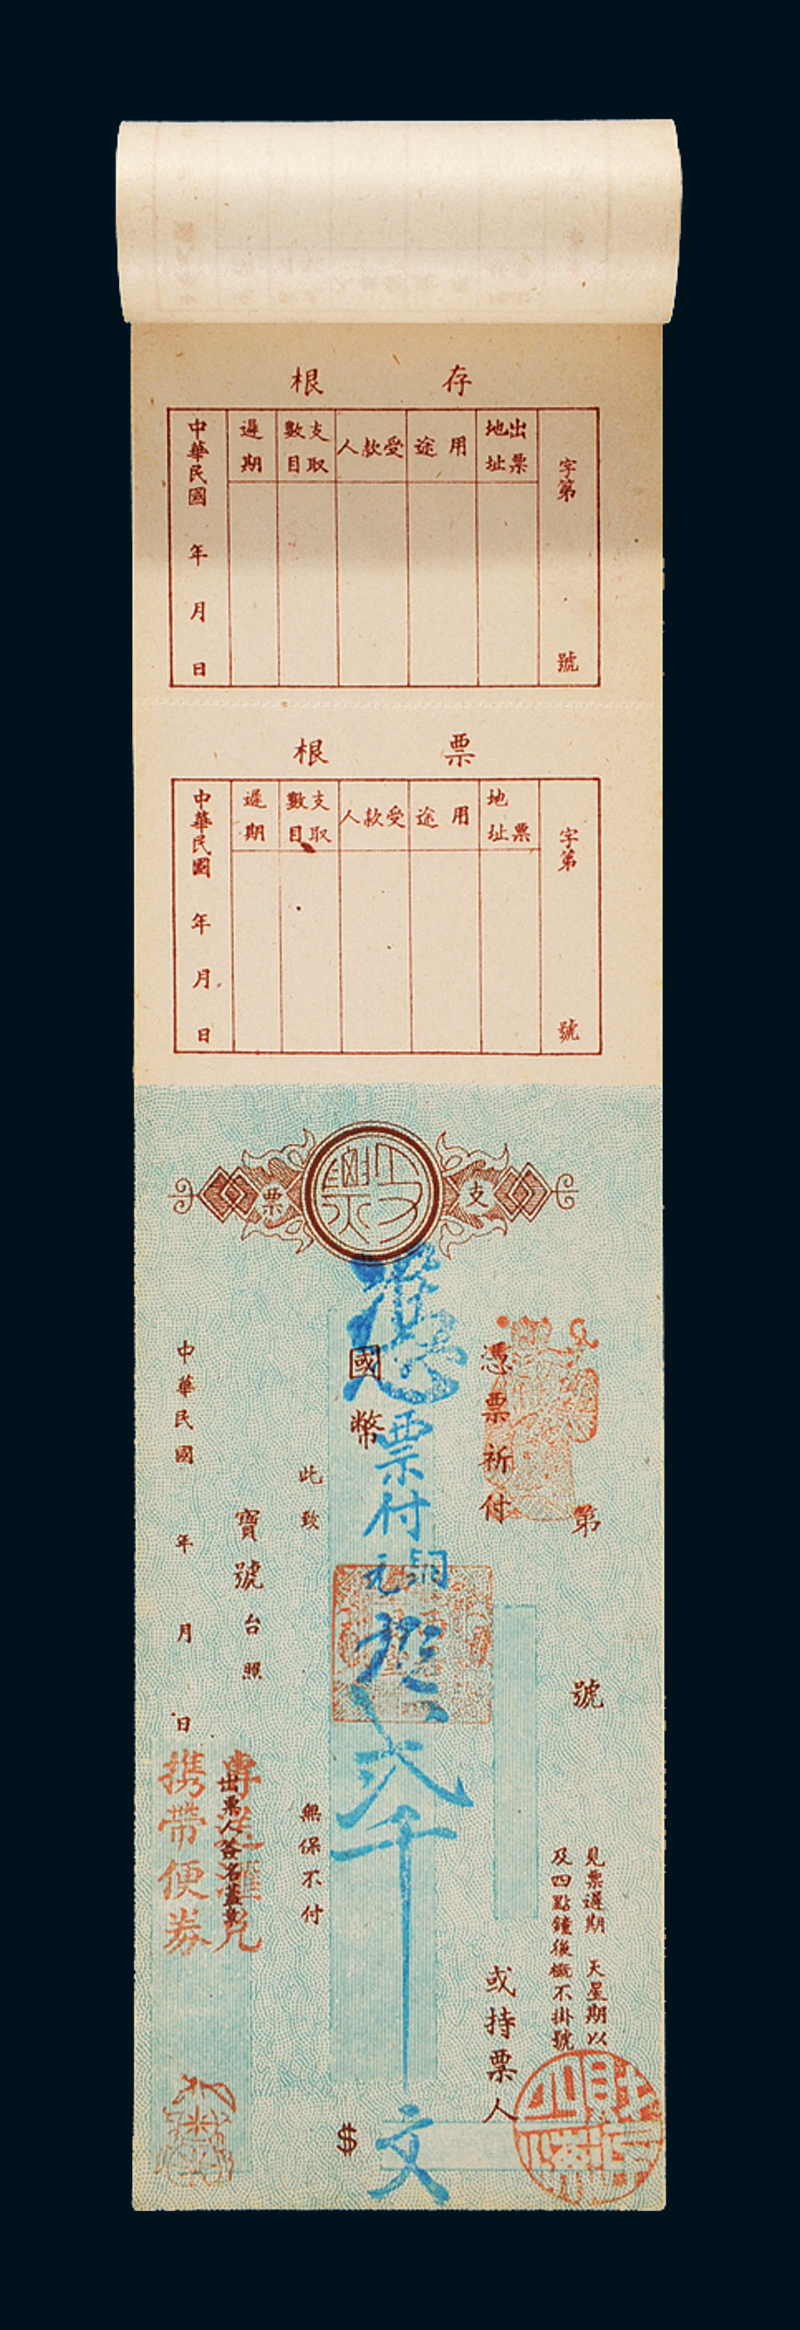 存根
字第 號
出票地址
用途
受款人
支取數目
遲期
中華民國 年 月 日
票根
字第 號
票地址
用途
受款人
支取數目
遲期
中華民國 年 月 日
支票
支票
第 號
見票遲期 天星期以
及四點鐘後概不掛號
憑票祈付
或持票人
國幣
$
憑票付
銅元
貳千
文
此致
無保不付
寶號台照
出票人簽名蓋章
中華民國 年 月 日
專業滙兌
携帶便券